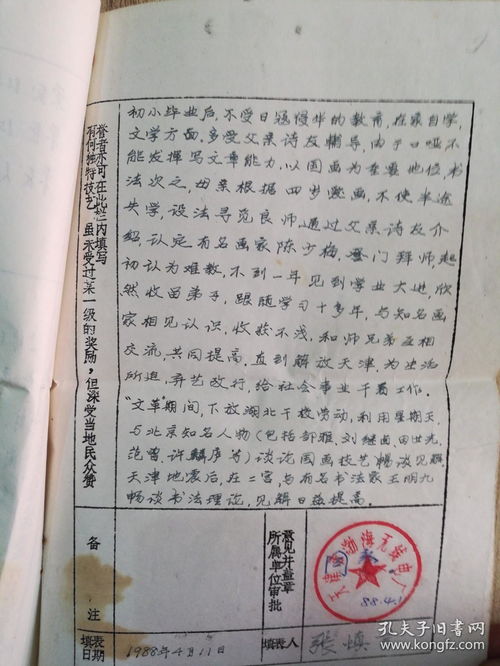 有何独特技艺 虽未受过某一级的奖励，但深受当地民众赞
誉者亦可在此栏内填写
初小毕业后，不受日寇侵华的教育，在家自学，
文学方面，多受父亲诗友辅导，由于口哑不
能发挥写文章能力，以国画为重要地位，书
法次之，母亲根据四岁爱画，不使半途
失学，设法寻觅良师，通过父亲诗友介
绍，认定有名画家陈少梅，登门拜师，起
初认为难教，不到一年见到学业大进，欣
然收留弟子，跟随学习十多年，与知名画
家相见认识，收获不浅，和师兄弟互相
交流，共同提高。直到解放天津，为生活
所迫，弃艺改行，给社会事业干着工作。
“文革期间，下放湖北干校劳动，利用星期天，
与北京知名人物（包括 刘继卤 田世光，
范曾，许麟庐等）谈论国画技艺，畅谈见解，
天津地震后，在二宫，与有名书法家王明九
畅谈书法理论，见解日益提高。
备注
所属单位审批
意见并盖章
天津 渤海无线电厂
88.4.
填表日期
1988年4月11日
填表人
张
孔夫子旧书网